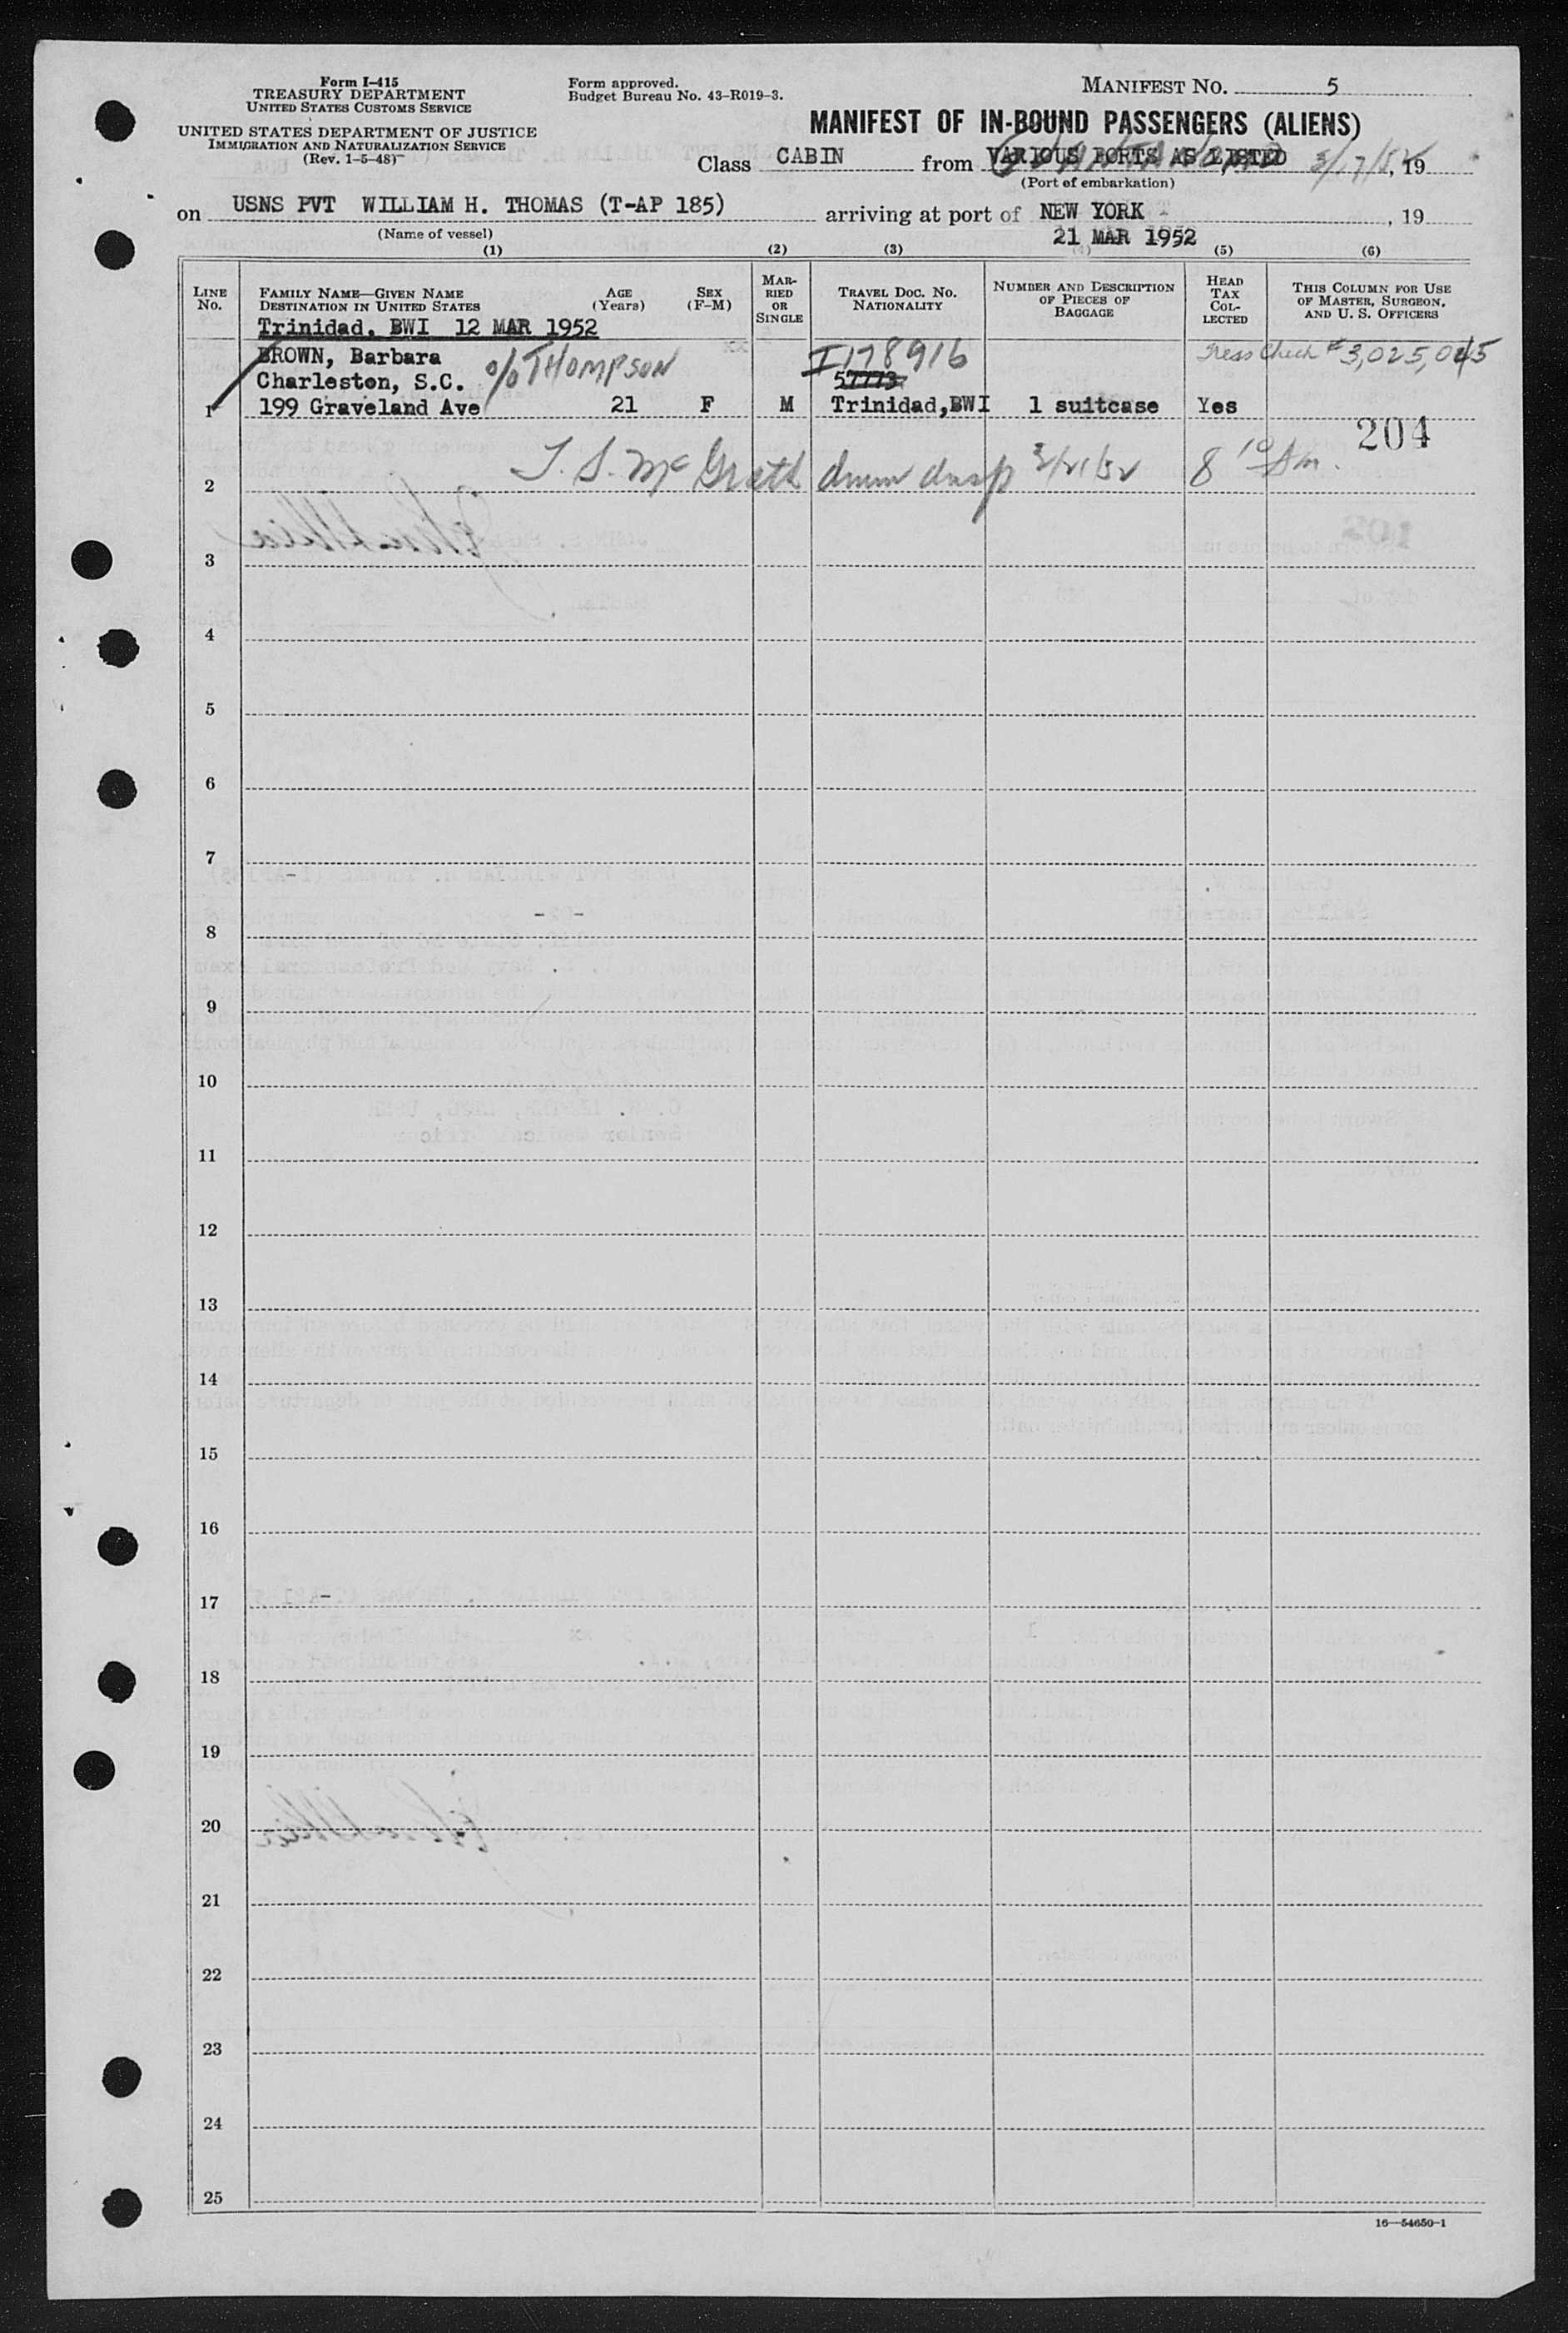 Form I-415
TREASURY DEPARTMENT
UNITED STATES CUSTOMS SERVICE
UNITED STATES DEPARTMENT OF JUSTICE
IMMIGRATION AND NATURALIZATION SERVICE
(Rev. 1-5-48)
Form approved.
Budget Bureau No. 43-R019-3.
MANIFEST NO. 5
MANIFEST OF IN-BOUND PASSENGERS (ALIENS)
Class CABIN from VARIOUS PORTS AS LISTED 3/17/52, 19
(Port of embarkation)
on USNS PVT WILLIAM H. THOMAS (T-AP 185) arriving at port of NEW YORK, 19
(Name of vessel)
21 MAR 1952
(1) (2) (3) (4) (5) (6)
LINE NO.
FAMILY NAME—GIVEN NAME
DESTINATION IN UNITED STATES
AGE (Years)
SEX (F-M)
MARRIED OR SINGLE
TRAVEL DOC. NO. NATIONALITY
NUMBER AND DESCRIPTION OF PIECES OF BAGGAGE
HEAD TAX COLLECTED
THIS COLUMN FOR USE OF MASTER, SURGEON, AND U. S. OFFICERS
Trinidad, BWI 12 MAR 1952
BROWN, Barbara I178916 Tress Check # 3,025,045
Charleston, S.C. % THOMPSON 57773
1 199 Graveland Ave 21 F M Trinidad, BWI 1 suitcase Yes
204
2 T. S. McGrath 3/21/52 8 10 Am.
3
4
5
6
7
8
9
10
11
12
13
14
15
16
17
18
19
20
21
22
23
24
25
16—54650-1